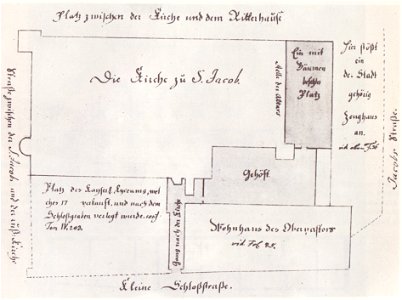 Platz zwischen der Kirche und dem Ritterhause
Die Kirche zu S. Jacob.
Stelle des Altars
Ein mit
Bäumen
besetzter
Platz
Hier stößt
ein
der Stadt
gehörig
Zeughaus
an.
Straße zwischen der S. Jacobs und der Kirche
Jacobs Straße.
Gehöft
Platz des Kaiserl. Lyceums, wel
ches 17 verkauft, und nach dem
Schloßgraben verlegt wurde.
Gang nach der Kirche
Wohnhaus des Oberpastors
Kleine Schloßstraße.